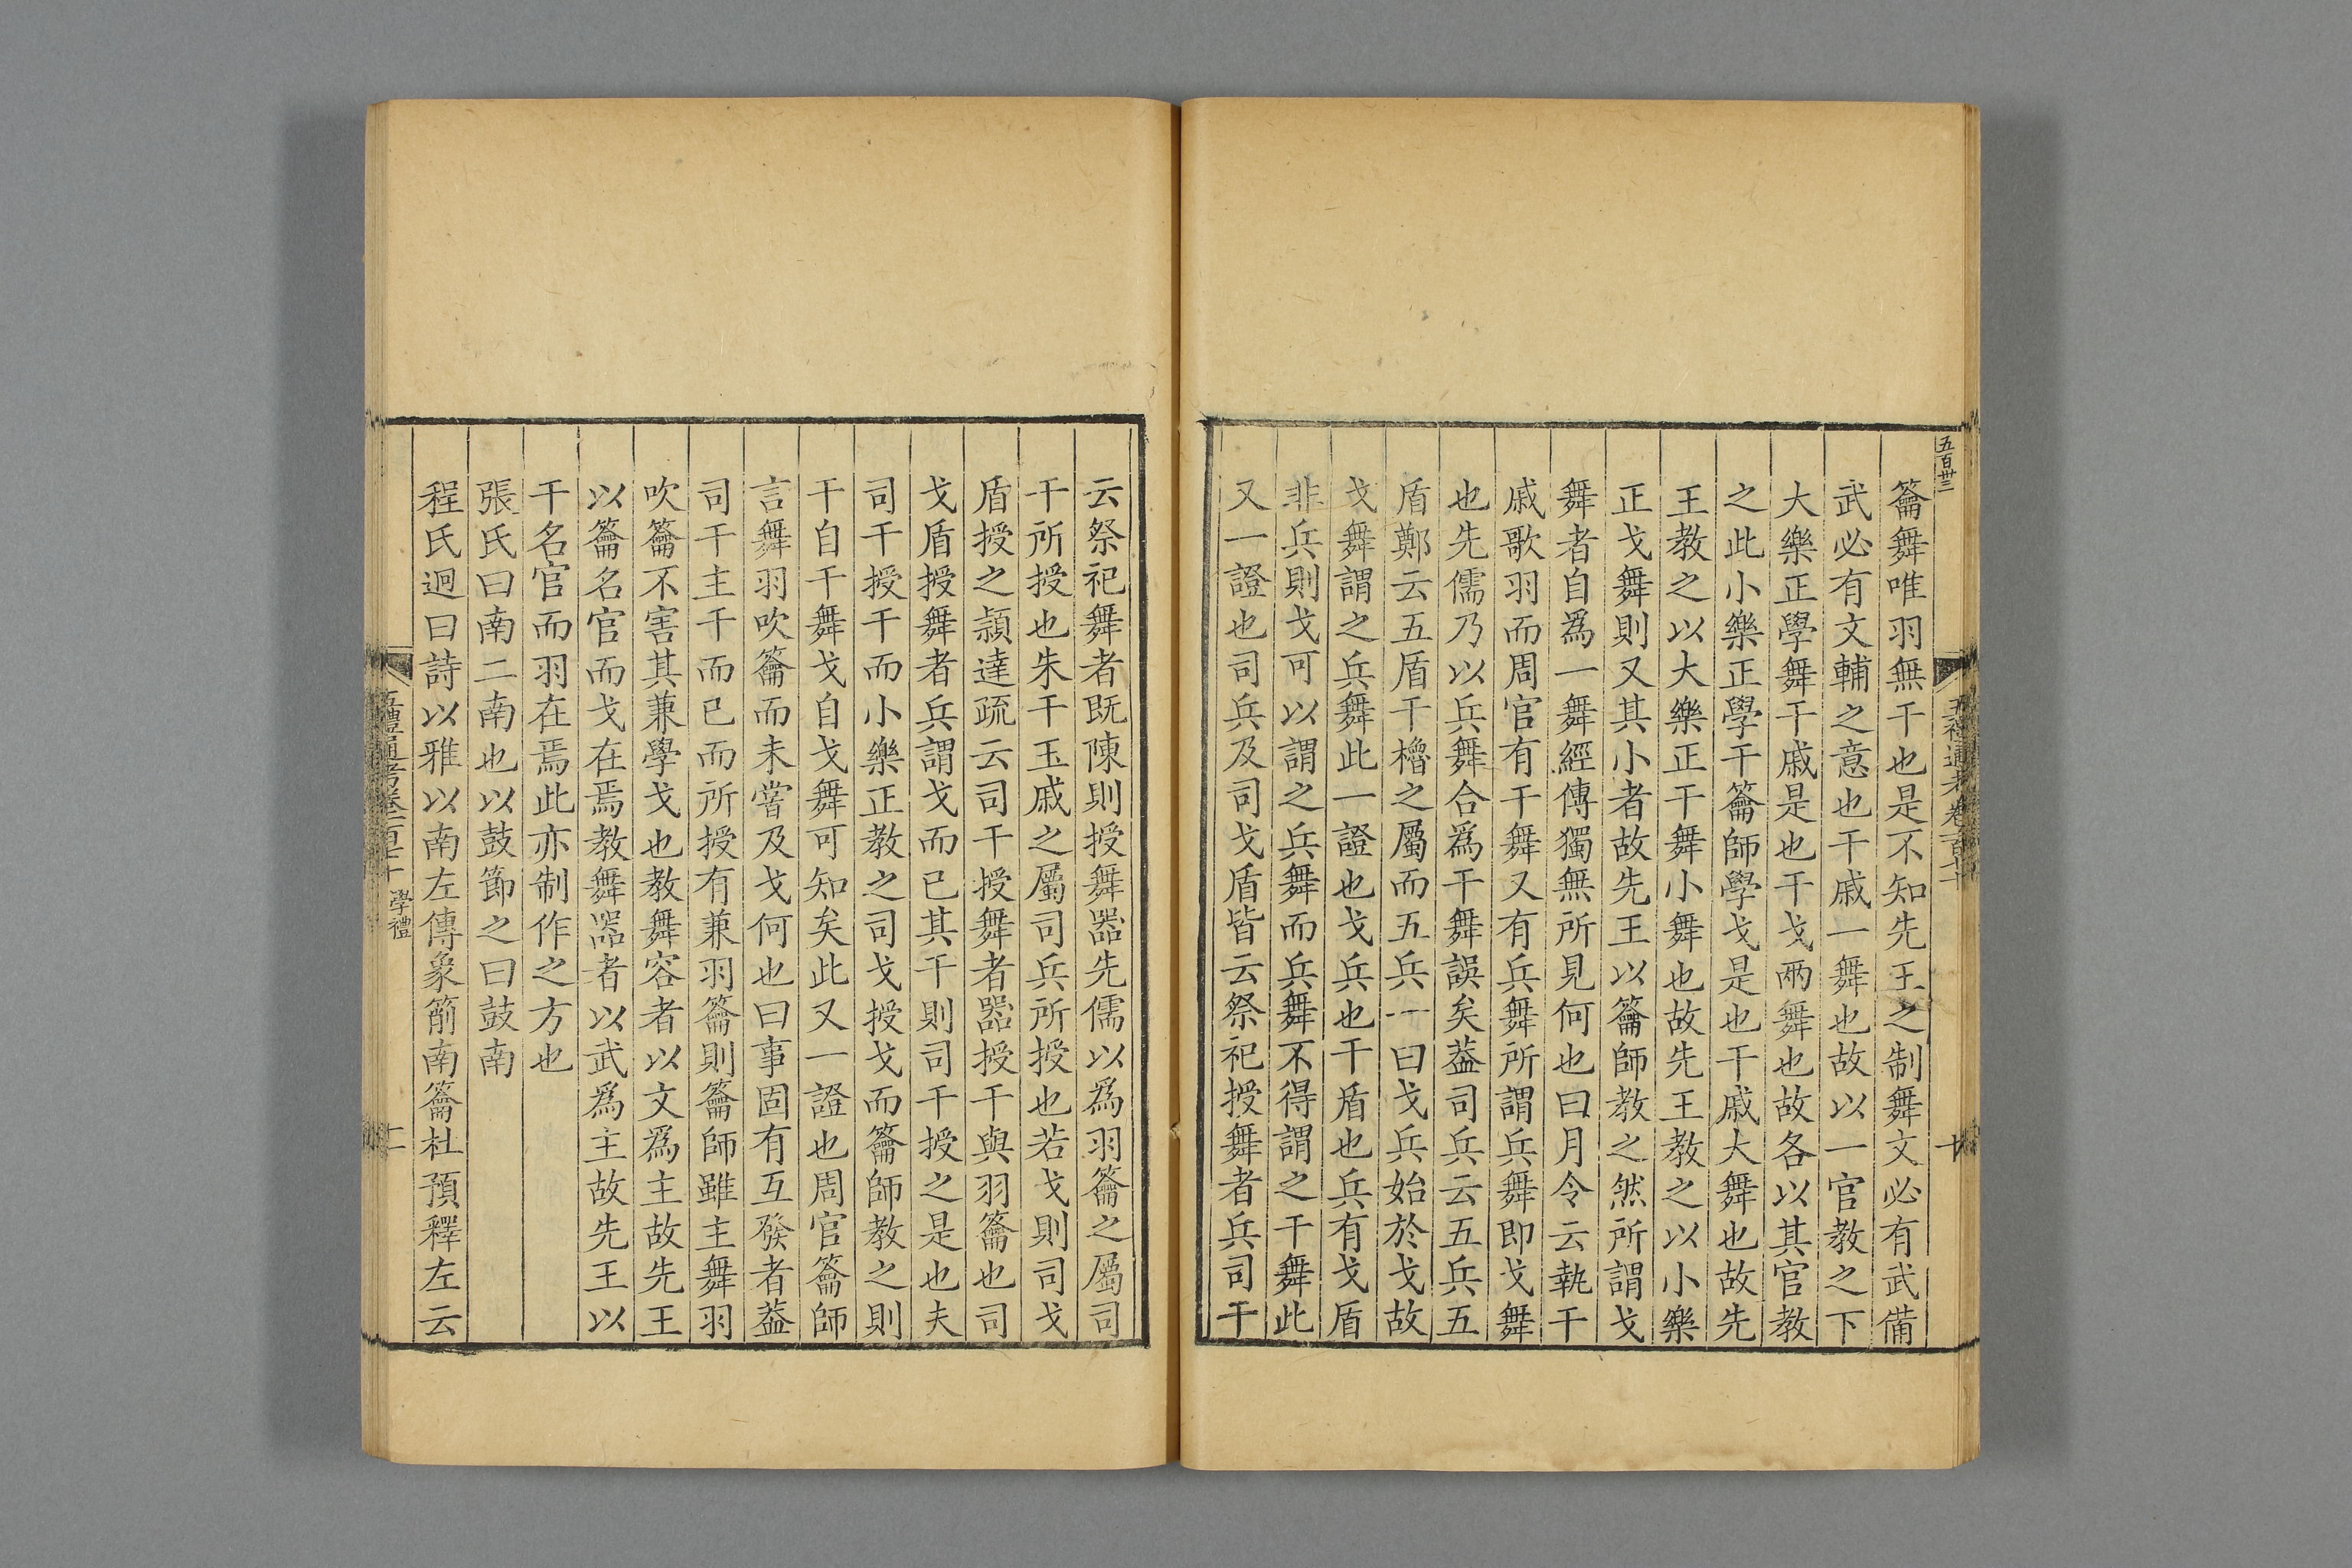 五百卅三
籥舞唯羽無干也是不知先王之制舞文必有武備
武必有文輔之意也干戚一舞也故以一官教之下
大樂正學舞干戚是也干戈兩舞也故各以其官教
之此小樂正學干籥師學戈是也干戚大舞也故先
王教之以大樂正干舞小舞也故先王教之以小樂
正戈舞則又其小者故先王以籥師教之然所謂戈
舞者自爲一舞經傳獨無所見何也曰月令云執干
戚歌羽而周官有干舞又有兵舞所謂兵舞即戈舞
也先儒乃以兵舞合爲干舞誤矣葢司兵云五兵五
盾鄭云五盾干櫓之屬而五兵一曰戈兵始於戈故
戈舞謂之兵舞此一證也戈兵也干盾也兵有戈盾
非兵則戈可以謂之兵舞而兵舞不得謂之干舞此
又一證也司兵及司戈盾皆云祭祀授舞者兵司干
云祭祀舞者既陳則授舞器先儒以爲羽籥之屬司
干所授也朱干玉戚之屬司兵所授也若戈則司戈
盾授之頴達疏云司干授舞者器授干與羽籥也司
戈盾授舞者兵謂戈而已其干則司干授之是也夫
司干授干而小樂正教之司戈授戈而籥師教之則
干自干舞戈自戈舞可知矣此又一證也周官籥師
言舞羽吹籥而未嘗及戈何也曰事固有互發者葢
司干主干而已而所授有兼羽籥則籥師雖主舞羽
吹籥不害其兼學戈也教舞容者以文爲主故先王
以籥名官而戈在焉教舞器者以武爲主故先王以
干名官而羽在焉此亦制作之方也
張氏曰南二南也以鼓節之曰鼓南
程氏迥曰詩以雅以南左傳象箾南籥杜預釋左云
五禮通考卷一百七十
學禮